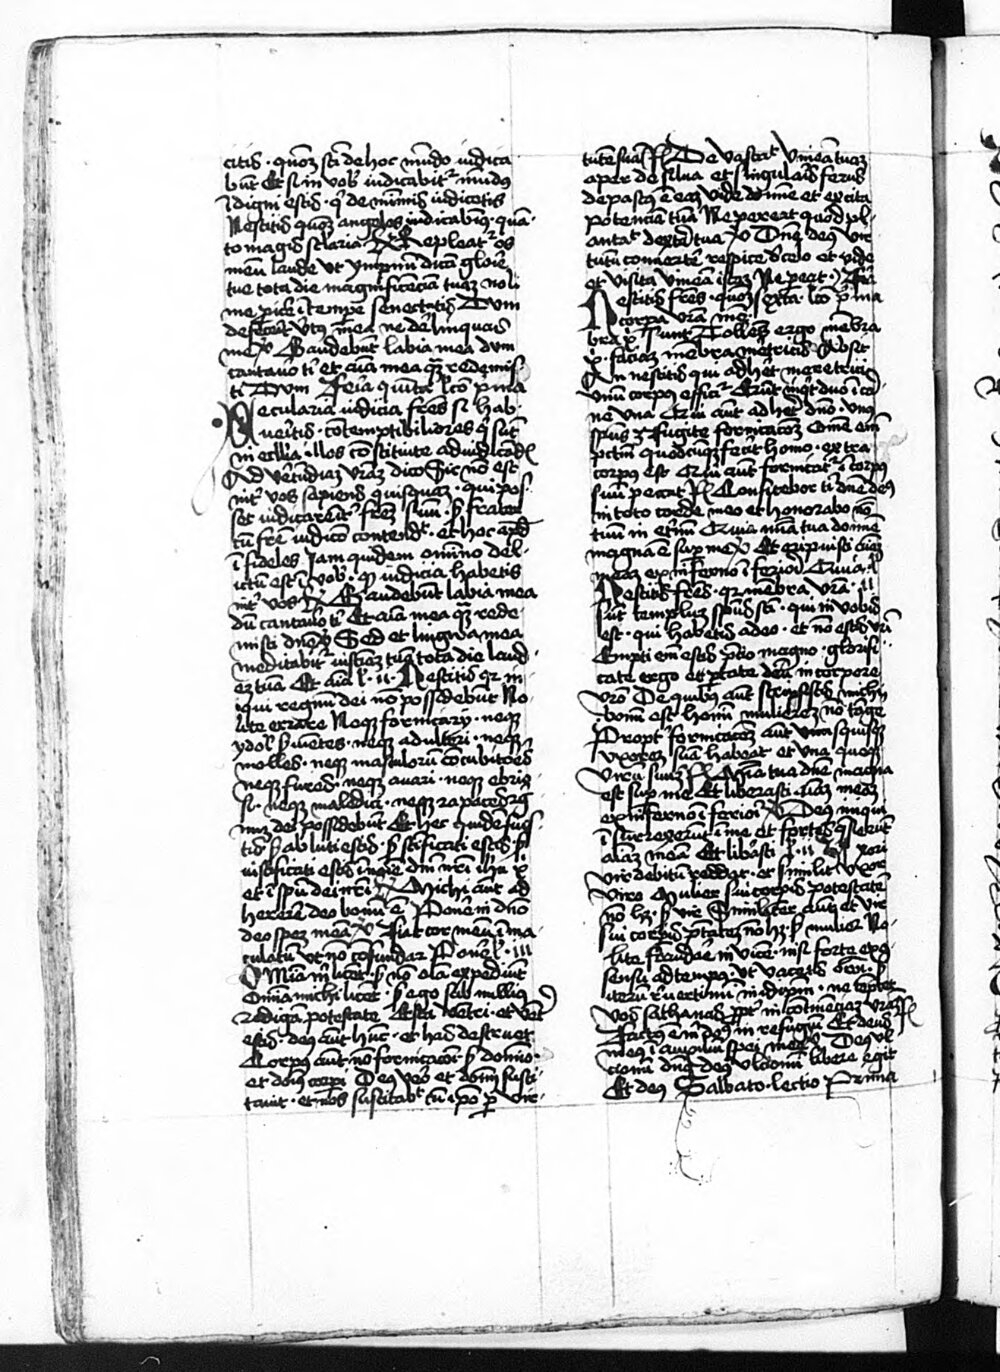 citis · quoniam sancti de hoc mundo iudica
bunt Et si in vobis iudicabitur mundus
indigni estis · qui de minimis iudicetis
Nescitis quoniam angelos iudicabimus · quan
to magis secularia Repleatur os
meum laude vt ympnum dicam glorie
tue tota die magnificenciam tuam noli
me proicere in tempore senectutis Dum
defecerit virtus mea ne derelinquas
me Gaudebunt labia mea dum
cantauero tibi et anima mea quam redemis
ti Dum Feria quinta leccio prima
Secularia iudicia fratres si hab
ueritis · contemptibiliores qui sunt
in ecclesia · illos constituite ad iudicandum
Ad verecundiam vestram dico Sic non est
inter vos sapiens quisquam · qui pos
set iudicare inter fratrem suum · sed frater
cum fratre iudicio contendit · et hoc apud
infideles Iam quidem omnino del
ictum est in vobis · quod iudicia habetis
inter vos Gaudebunt labia mea
dum cantauero tibi Et anima mea quam rede
misti domine Sed et lingwa mea
meditabitur iusticiam tuam tota die laud
em tuam Et anima l · ii · Nescitis quia in
iqui regnum dei non possidebunt No
lite errare Neque fornicarij · neque
ydolis seruientes · neque adulteri · neque
molles · neque masculorum concubitores
neque fures · neque auari · neque ebrio
si · neque maledici · neque rapaces reg
num dei possidebunt Et hec quidem fuis
tis sed abluti estis · sed sanctificati estis sed
iustificati estis in nomine domini nostri ihesu christi
et in spiritu dei nostri Michi autem ad
herere deo bonum est Ponere in domino
deo spem meam Fiat cor meum inma
culatum vt non confundar Ponere l · iii
Omnia mihi licent · sed non omnia expediunt
Omnia michi licent · sed ego sub nullius
redigar potestate Esca ventri · et venter
escis · deus autem hunc · et has destruet
Corpus autem non fornicacioni sed domino ·
et dominus corpori Deus vero et dominum susci
tauit · et nos suscitabit cum christo per vir
tutem suam De Vastauit Vineam tuam
aper de silua et singularis ferus
depastus est eam vide domine et excita
potenciam tuam Ne pereat quod pl
antauit dextera tua Domine deus vir
tutum conuertere respice de celo et vide
et visita vineam istam Ne pereat Feria
sexta · leccio prima
Nescitis fratres · quoniam
corpora vestra mem
bra christi sunt Tollens ergo membra
christi · faciam membra meretricis Absit
An nescitis qui adheret meretrici
vnum corpus efficitur Erunt inquit duo in car
ne vna Qui autem adheret domino · vnus
spiritus est Fugite fornicacionem Omne enim
peccatum quodcumque fecerit homo · extra
corpus est Qui autem fornicatur in corpus
suum peccat Confitebor tibi domine deus
in toto corde meo et honorabo nomen
tuum in eternum Quia misericordia tua domine
magna est super me Et eripuisti animam
meam ex inferno inferiori Quia l
Nescitis fratres · quia membra vestra · ii
sunt templum spiritus sancti · qui in vobis
est · qui habetis a deo · et non estis vestri
Empti enim estis precio magno · glorifi
cate ergo et portate deum in corpore
vestro De quibus autem scripsistis michi
bonum est homini mulierem non tangere
Propter fornicacionem autem vnusquisque
vxorem suam habeat · et vna queque
virum suum Misericordia tua domine magna
est super me Et liberasti animam meam
ex inferno inferiori Deus iniqui
insurrexerunt in me et fortes quesierunt
animam meam Et liberasti l · iii Vxori
vir debitum reddat · et similiter vxor
viro Mulier sui corporis potestatem
non habet · sed vir Similiter autem et vir
sui corporis potestatem non habet · sed mulier No
lite fraudare in vicem · nisi forte ex con
sensu ad tempus vt vacetis oracioni · et
iterum reuertimini in id ipsum · ne temptet
vos sathanas propter incontinenciam vestram
Factus est michi dominus in refugium Et deus
meus in auxilium spei mee Deus vl
cionum dominus deus vlcionum libere egit
Et deus Sabbato · lectio Prima